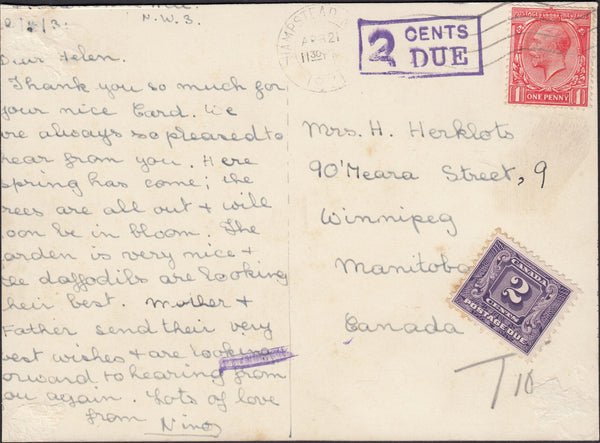 N.W.3.
Dear Helen.
Thank you so much for
your nice Card. We
are always so pleased to
hear from you. Here
spring has come; the
trees are all out + will
soon be in bloom. The
garden is very nice +
the daffodils are looking
their best. Mother +
Father send their very
best wishes + are looking
forward to hearing from
you again. Lots of love
from Nino
HAMPSTEAD
1130
2 CENTS
DUE
POSTAGE REVENUE
1 ONE PENNY 1
Mrs. H. Herklots
90'Meara Street, 9
Winnipeg
Manitoba
Canada
CANADA
2
CENTS
POSTAGE DUE
T10